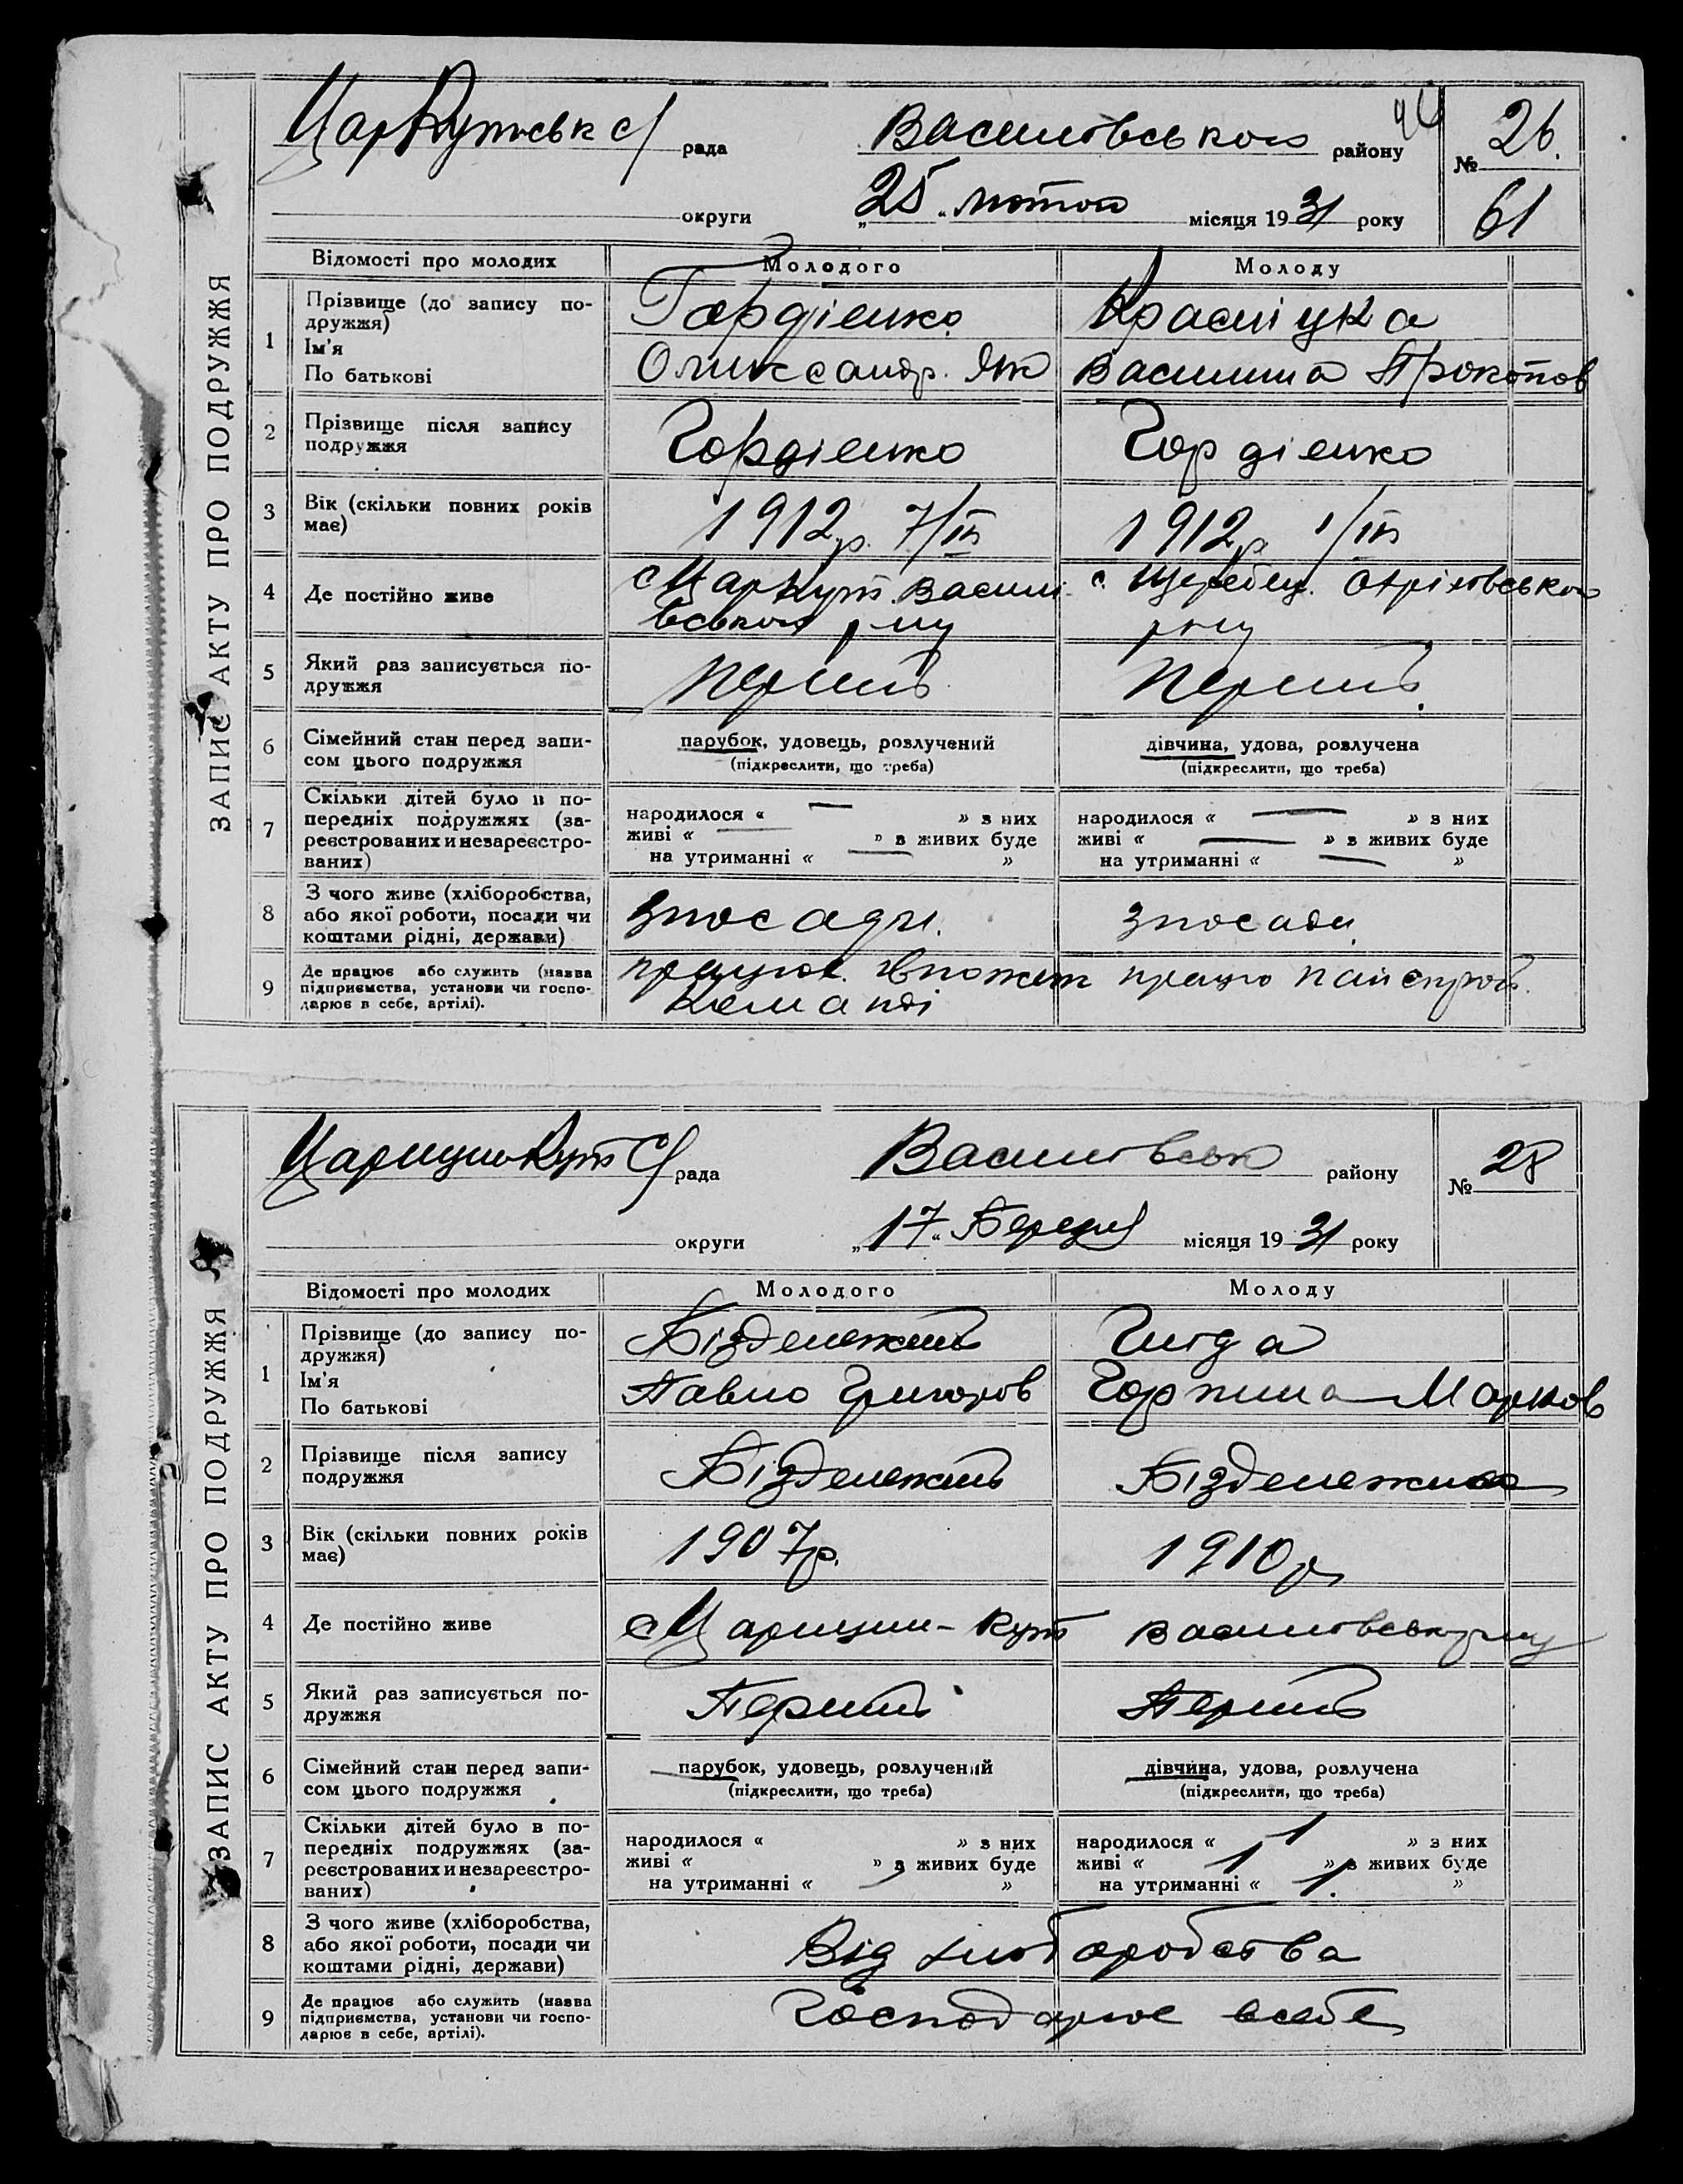 ЗАПИС АКТУ ПРО ПОДРУЖЖЯ
ЦарКутськ с/рада Василівського району № 26.
61
округи „25“ лютого місяця 1931 року
Відомості про молодих Молодого Молоду
1 Прізвище (до запису подружжя) Гордієнко Красніцка
Ім'я
По батькові Оликсандр. Як Василина Прокопов
2 Прізвище після запису подружжя Гордієнко Гордієнко
3 Вік (скільки повних років має) 1912р. 7/III 1912р 1/III
4 Де постійно живе с ЦарКут. Василівського р-ну с. Щеребец. Оріхівського р-ну
5 Який раз записується подружжя Перший Перший
6 Сімейний стан перед записом цього подружжя парубок, удовець, розлучений дівчина, удова, розлучена
(підкреслити, що треба) (підкреслити, що треба)
7 Скільки дітей було в попередніх подружжях (зареєстрованих и незареєстрованих) народилося « — » з них народилося « — » з них
живі « — » з живих буде живі « — » з живих буде
на утриманні « — » на утриманні « — »
8 З чого живе (хліборобства, або якої роботи, посади чи коштами рідні, держави) зпосади. зпосади
9 Де працює або служить (назва підприємства, установи чи господарює в себе, артілі). працює. впожежн команді працю
ЗАПИС АКТУ ПРО ПОДРУЖЖЯ
ЦарицинКут С/рада Василівськ району № 28
округи „17“ Березня місяця 1931 року
Відомості про молодих Молодого Молоду
1 Прізвище (до запису подружжя) Бізденежний Гнида
Ім'я
По батькові Павло Григоров Горпина Марков
2 Прізвище після запису подружжя Бізденежний Бізденежна
3 Вік (скільки повних років має) 1907р. 1910р
4 Де постійно живе с Царицин-Кут Василівськ р-ну
5 Який раз записується подружжя Перший Перший
6 Сімейний стан перед записом цього подружжя парубок, удовець, розлучений дівчина, удова, розлучена
(підкреслити, що треба) (підкреслити, що треба)
7 Скільки дітей було в попередніх подружжях (зареєстрованих и незареєстрованих) народилося « » з них народилося « 1 » з них
живі « » з живих буде живі « 1 » з живих буде
на утриманні « » на утриманні « 1. »
8 З чого живе (хліборобства, або якої роботи, посади чи коштами рідні, держави) Від хліборобства
9 Де працює або служить (назва підприємства, установи чи господарює в себе, артілі). Господарює всебе